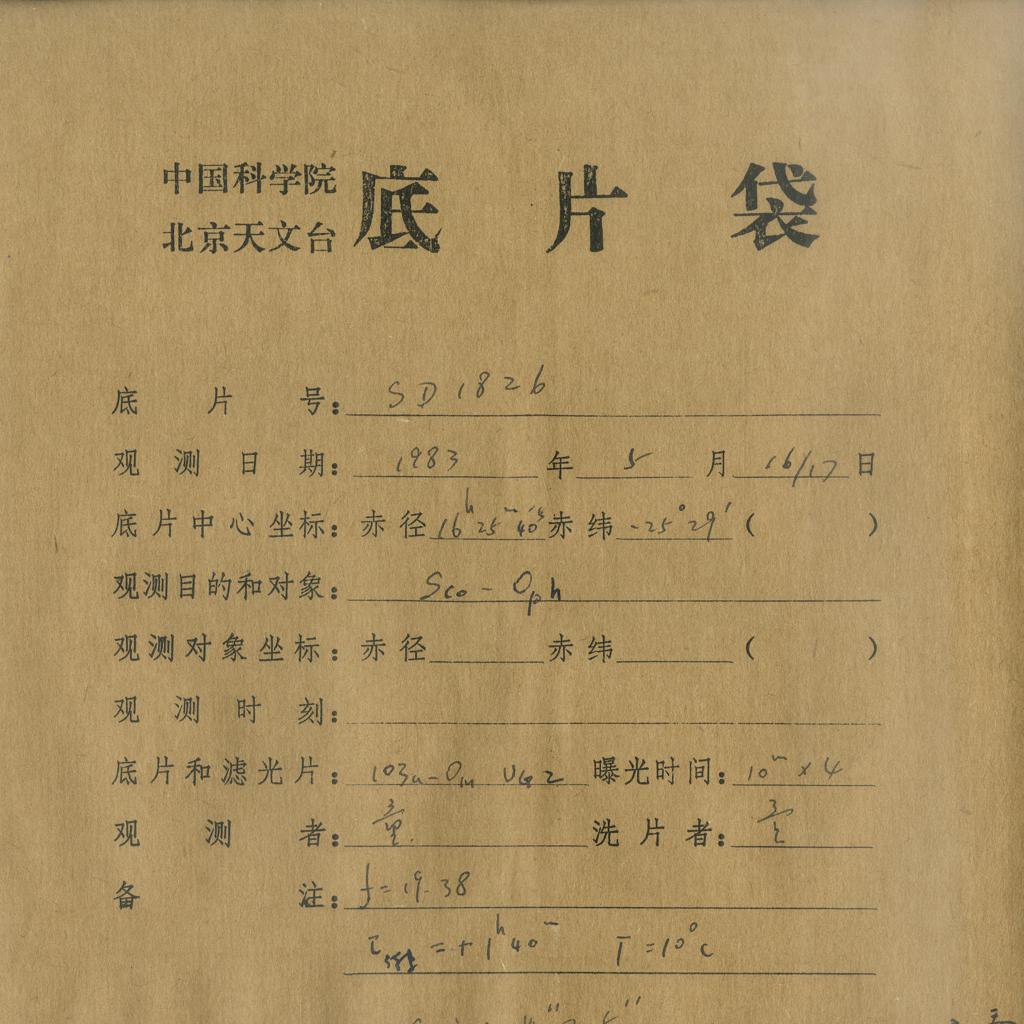 中国科学院
北京天文台
底片袋
底片号: SD1826
观测日期: 1983年 5月 16/17日
底片中心坐标: 赤径 16h25m40s 赤纬 -25°29′ ( )
观测目的和对象: Sco-Oph
观测对象坐标: 赤径 赤纬 ( )
观测时刻:
底片和滤光片: 103a-O UG2 曝光时间: 10m×4
观测者: 洗片者:
备注: f=19.38
=+1h40m T=10°C